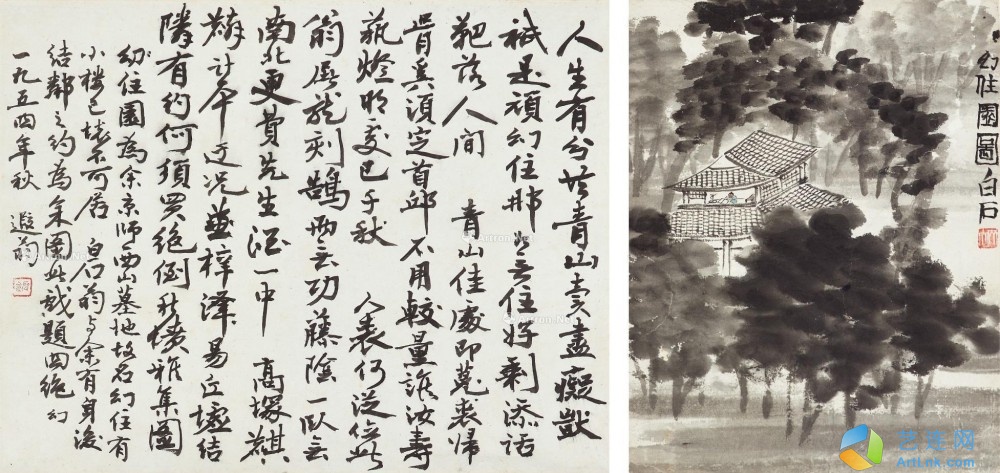 人生有分共青山賣盡癡獃
祇是頑幻住那無住好剩添話
靶落人間 青山佳處即菟裘歸
骨奚須定首邱不用較量誰汝壽
燈明處已千秋 人表何從位此
翁屠龍刻鵠兩無功藤陰一臥無
南北更費先生酒一中 高塚麒
麟計本迂況無梓澤易丘墟結
隣有約何須買絕倒秋橫雅集圖
幻住園為余京師西山墓地故名幻住有
小樓已壞不可居 白石翁与余有身後
結鄰之約為余圖此戲題四絕幻
一九五四年秋 遐翁
幻住園圖 白石
Artlink.com